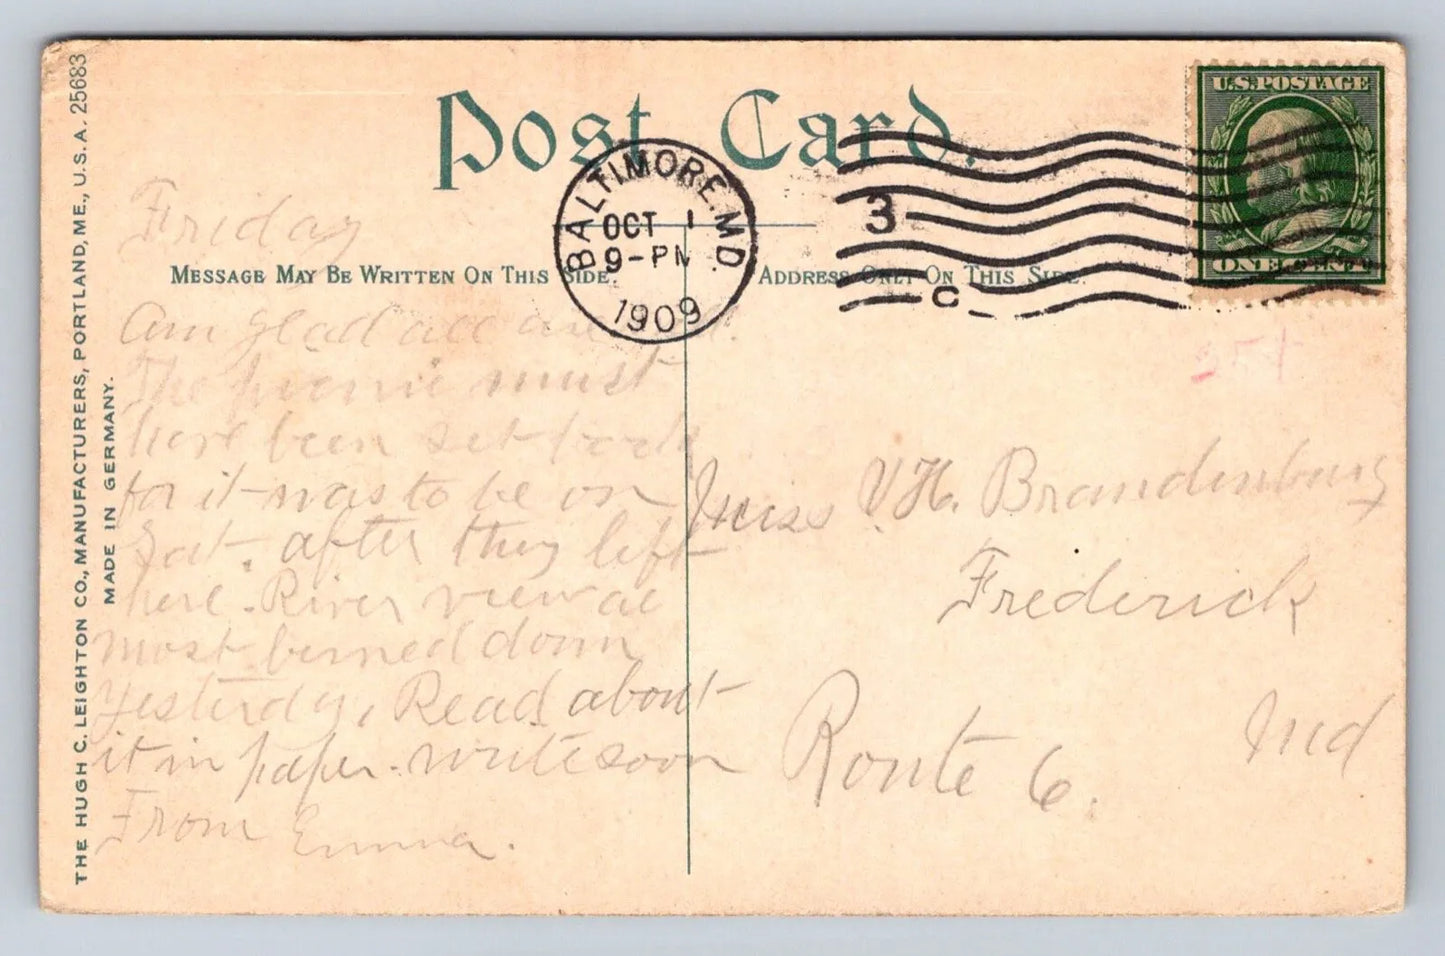 THE HUGH C. LEIGHTON CO., MANUFACTURERS, PORTLAND, ME., U.S.A. 25683
MADE IN GERMANY.
Post Card.
U.S. POSTAGE
ONE CENT
BALTIMORE, MD.
OCT 1
9-PM
1909
3
C
MESSAGE MAY BE WRITTEN ON THIS SIDE.
ADDRESS ONLY ON THIS SIDE.
Friday
Am glad all
The picnic must
have been set back
for it was to be on
Sat. after they left
here. River view al
most burned down
yesterdy, Read about
it in paper. write soon
From Emma.
Miss V.H. Brandenburg
Frederick
Md
Route 6.